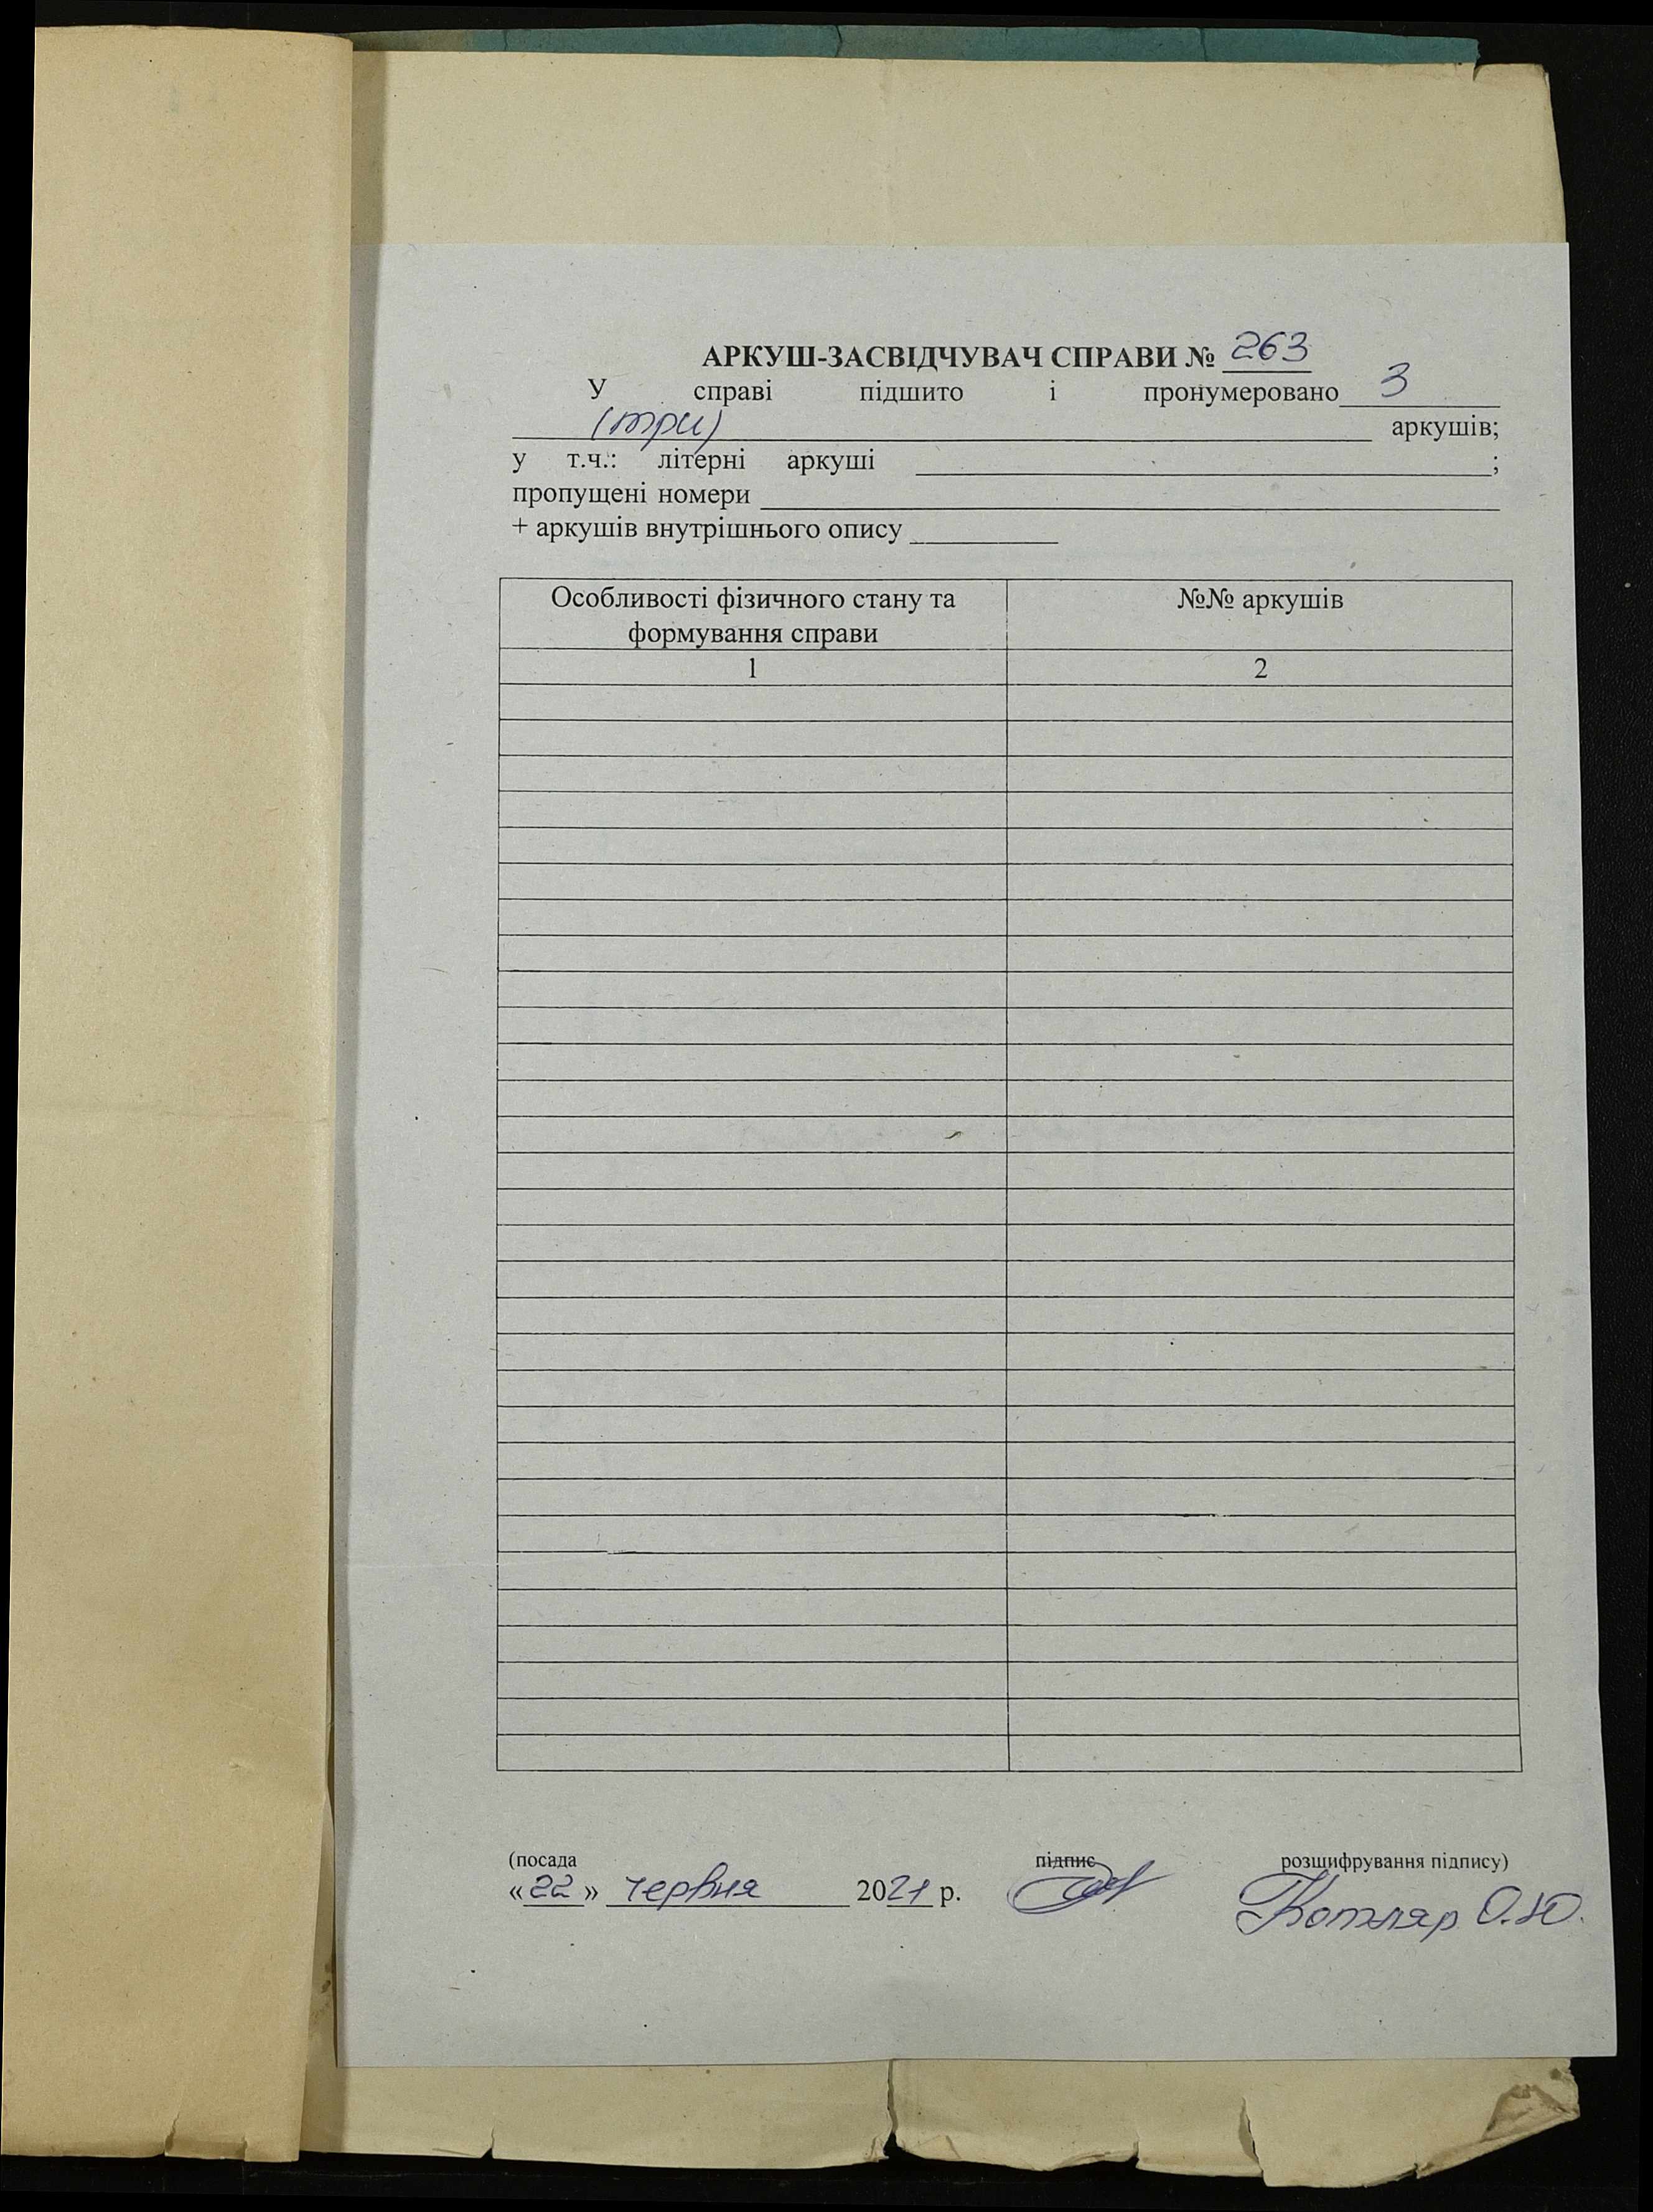 АРКУШ-ЗАСВІДЧУВАЧ СПРАВИ № 263
У справі підшито і пронумеровано 3
(три) аркушів;
у т.ч.: літерні аркуші ;
пропущені номери
+ аркушів внутрішнього опису
Особливості фізичного стану та формування справи №№ аркушів
1 2
(посада підпис розшифрування підпису)
«22» червня 2021 р. Котляр О.Ю.